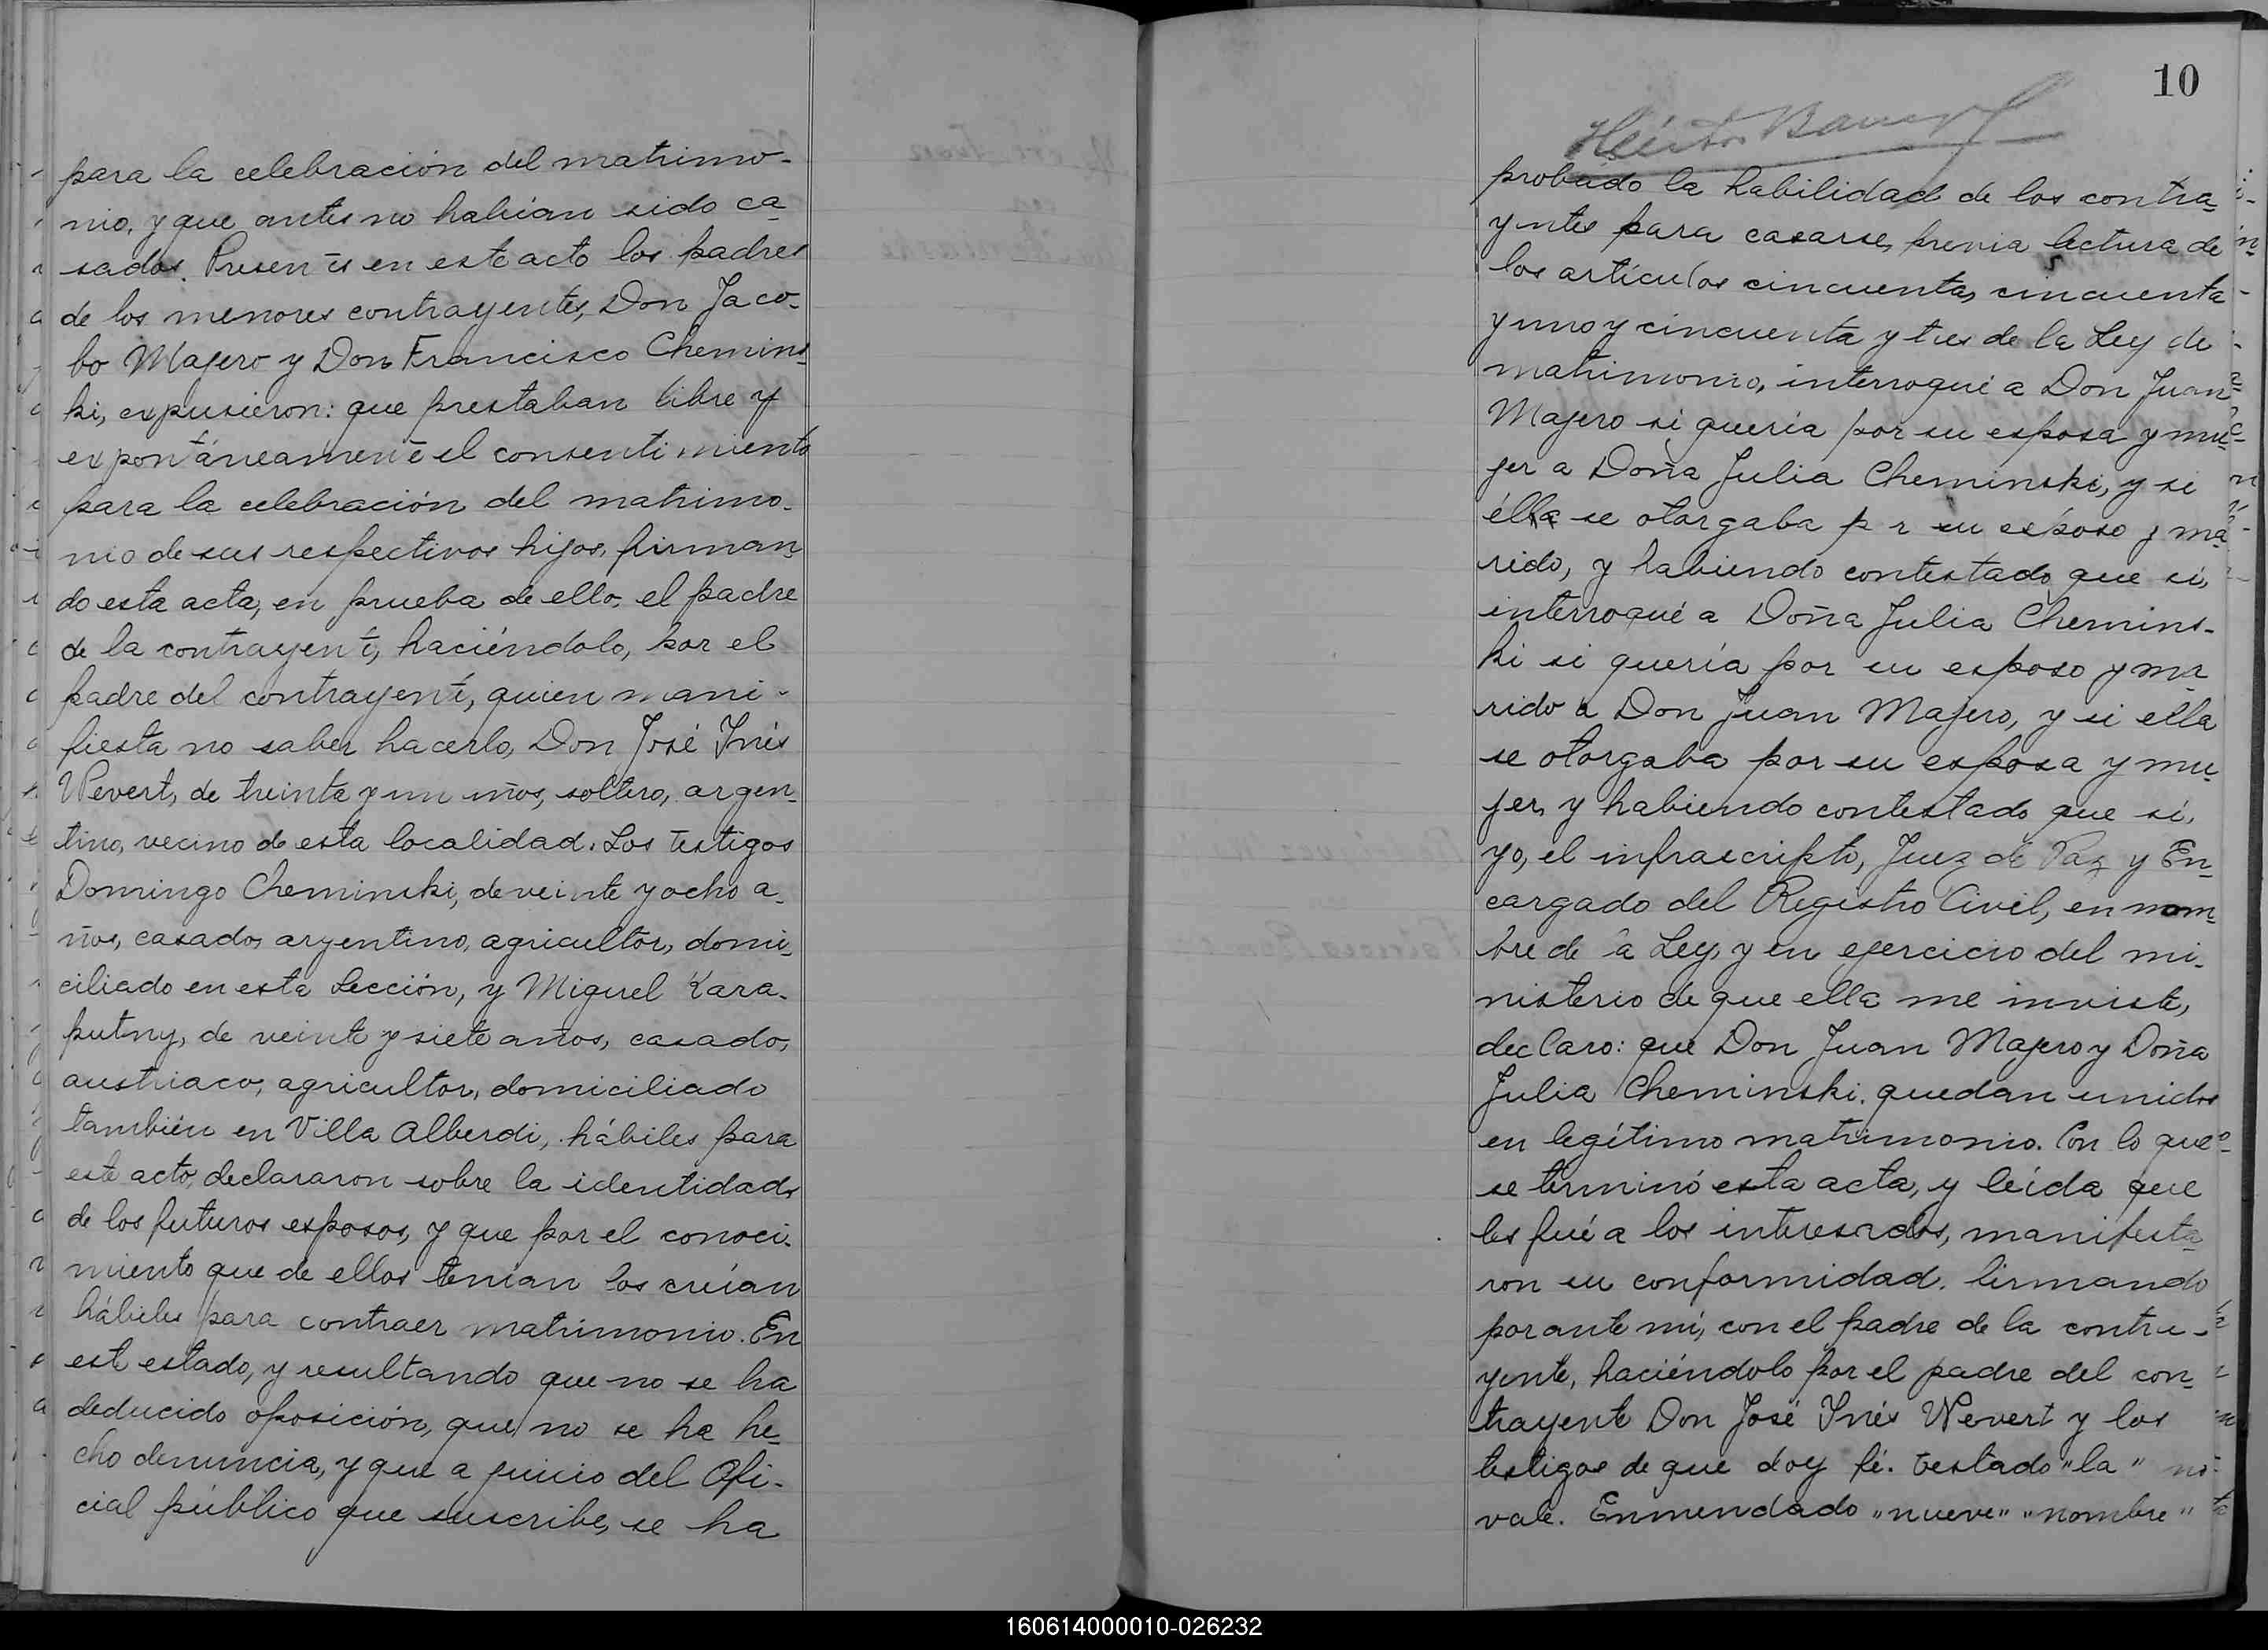 para la celebración del matrimo-
nio, y que antes no habían sido ca-
sados. Presentes en este acto los padres
de los menores contrayentes, Don Jaco-
bo Majero y Don Francisco Chemins-
ki, expusieron: que prestaban libre y
expontáneamente el consentimiento
para la celebración del matrimo-
nio de sus respectivos hijos, firman-
do esta acta, en prueba de ello, el padre
de la contrayente, haciéndolo, por el
padre del contrayente, quien mani-
fiesta no saber hacerlo, Don José Inés
Wevert, de treinta y un años, soltero, argen-
tino, vecino de esta localidad. Los testigos
Domingo Cheminski, de veinte y ocho a-
ños, casado, argentino, agricultor, domi-
ciliado en esta Sección, y Miguel Kara-
putny, de veinte y siete años, casado,
austriaco, agricultor, domiciliado
también en Villa Alberdi, hábiles para
este acto, declararon sobre la identidad
de los futuros esposos, y que por el conoci-
miento que de ellos tenían los creían
hábiles para contraer matrimonio. En
este estado, y resultando que no se ha
deducido oposición, que no se ha he-
cho denuncia, y que a juicio del Ofi-
cial público que suscribe, se ha
10
Héctor
probado la habilidad de los contra-
yentes para casarse, previa lectura de
los artículos cincuenta, cincuenta
y uno y cincuenta y tres de la Ley de
matrimonio, interrogué a Don Juan
Majero si quería por su esposa y mu-
jer a Doña Julia Cheminski, y si
él se otorgaba por su esposo y ma-
rido, y habiendo contestado que sí,
interrogué a Doña Julia Chemins-
ki si quería por su esposo y ma-
rido a Don Juan Majero, y si ella
se otorgaba por su esposa y mu-
jer, y habiendo contestado que sí,
yo, el infrascripto, Juez de Paz y En-
cargado del Registro Civil, en nom-
bre de la Ley, y en ejercicio del mi-
nisterio de que ella me inviste,
declaro: que Don Juan Majero y Doña
Julia Cheminski, quedan unidos
en legítimo matrimonio. Con lo que
se terminó esta acta, y leída que
les fué a los interesados, manifesta-
ron su conformidad, firmando
por ante mí, con el padre de la contra-
yente, haciéndolo por el padre del con-
trayente Don José Inés Wevert y los
testigos de que doy fé. Testado "la" no
vale. Enmendado "nueve" "nombre"
160614000010-026232